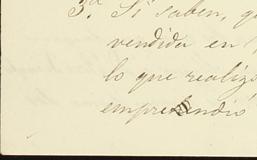 3ª Si saben, qu
vendida en
lo que realizó
emprendió